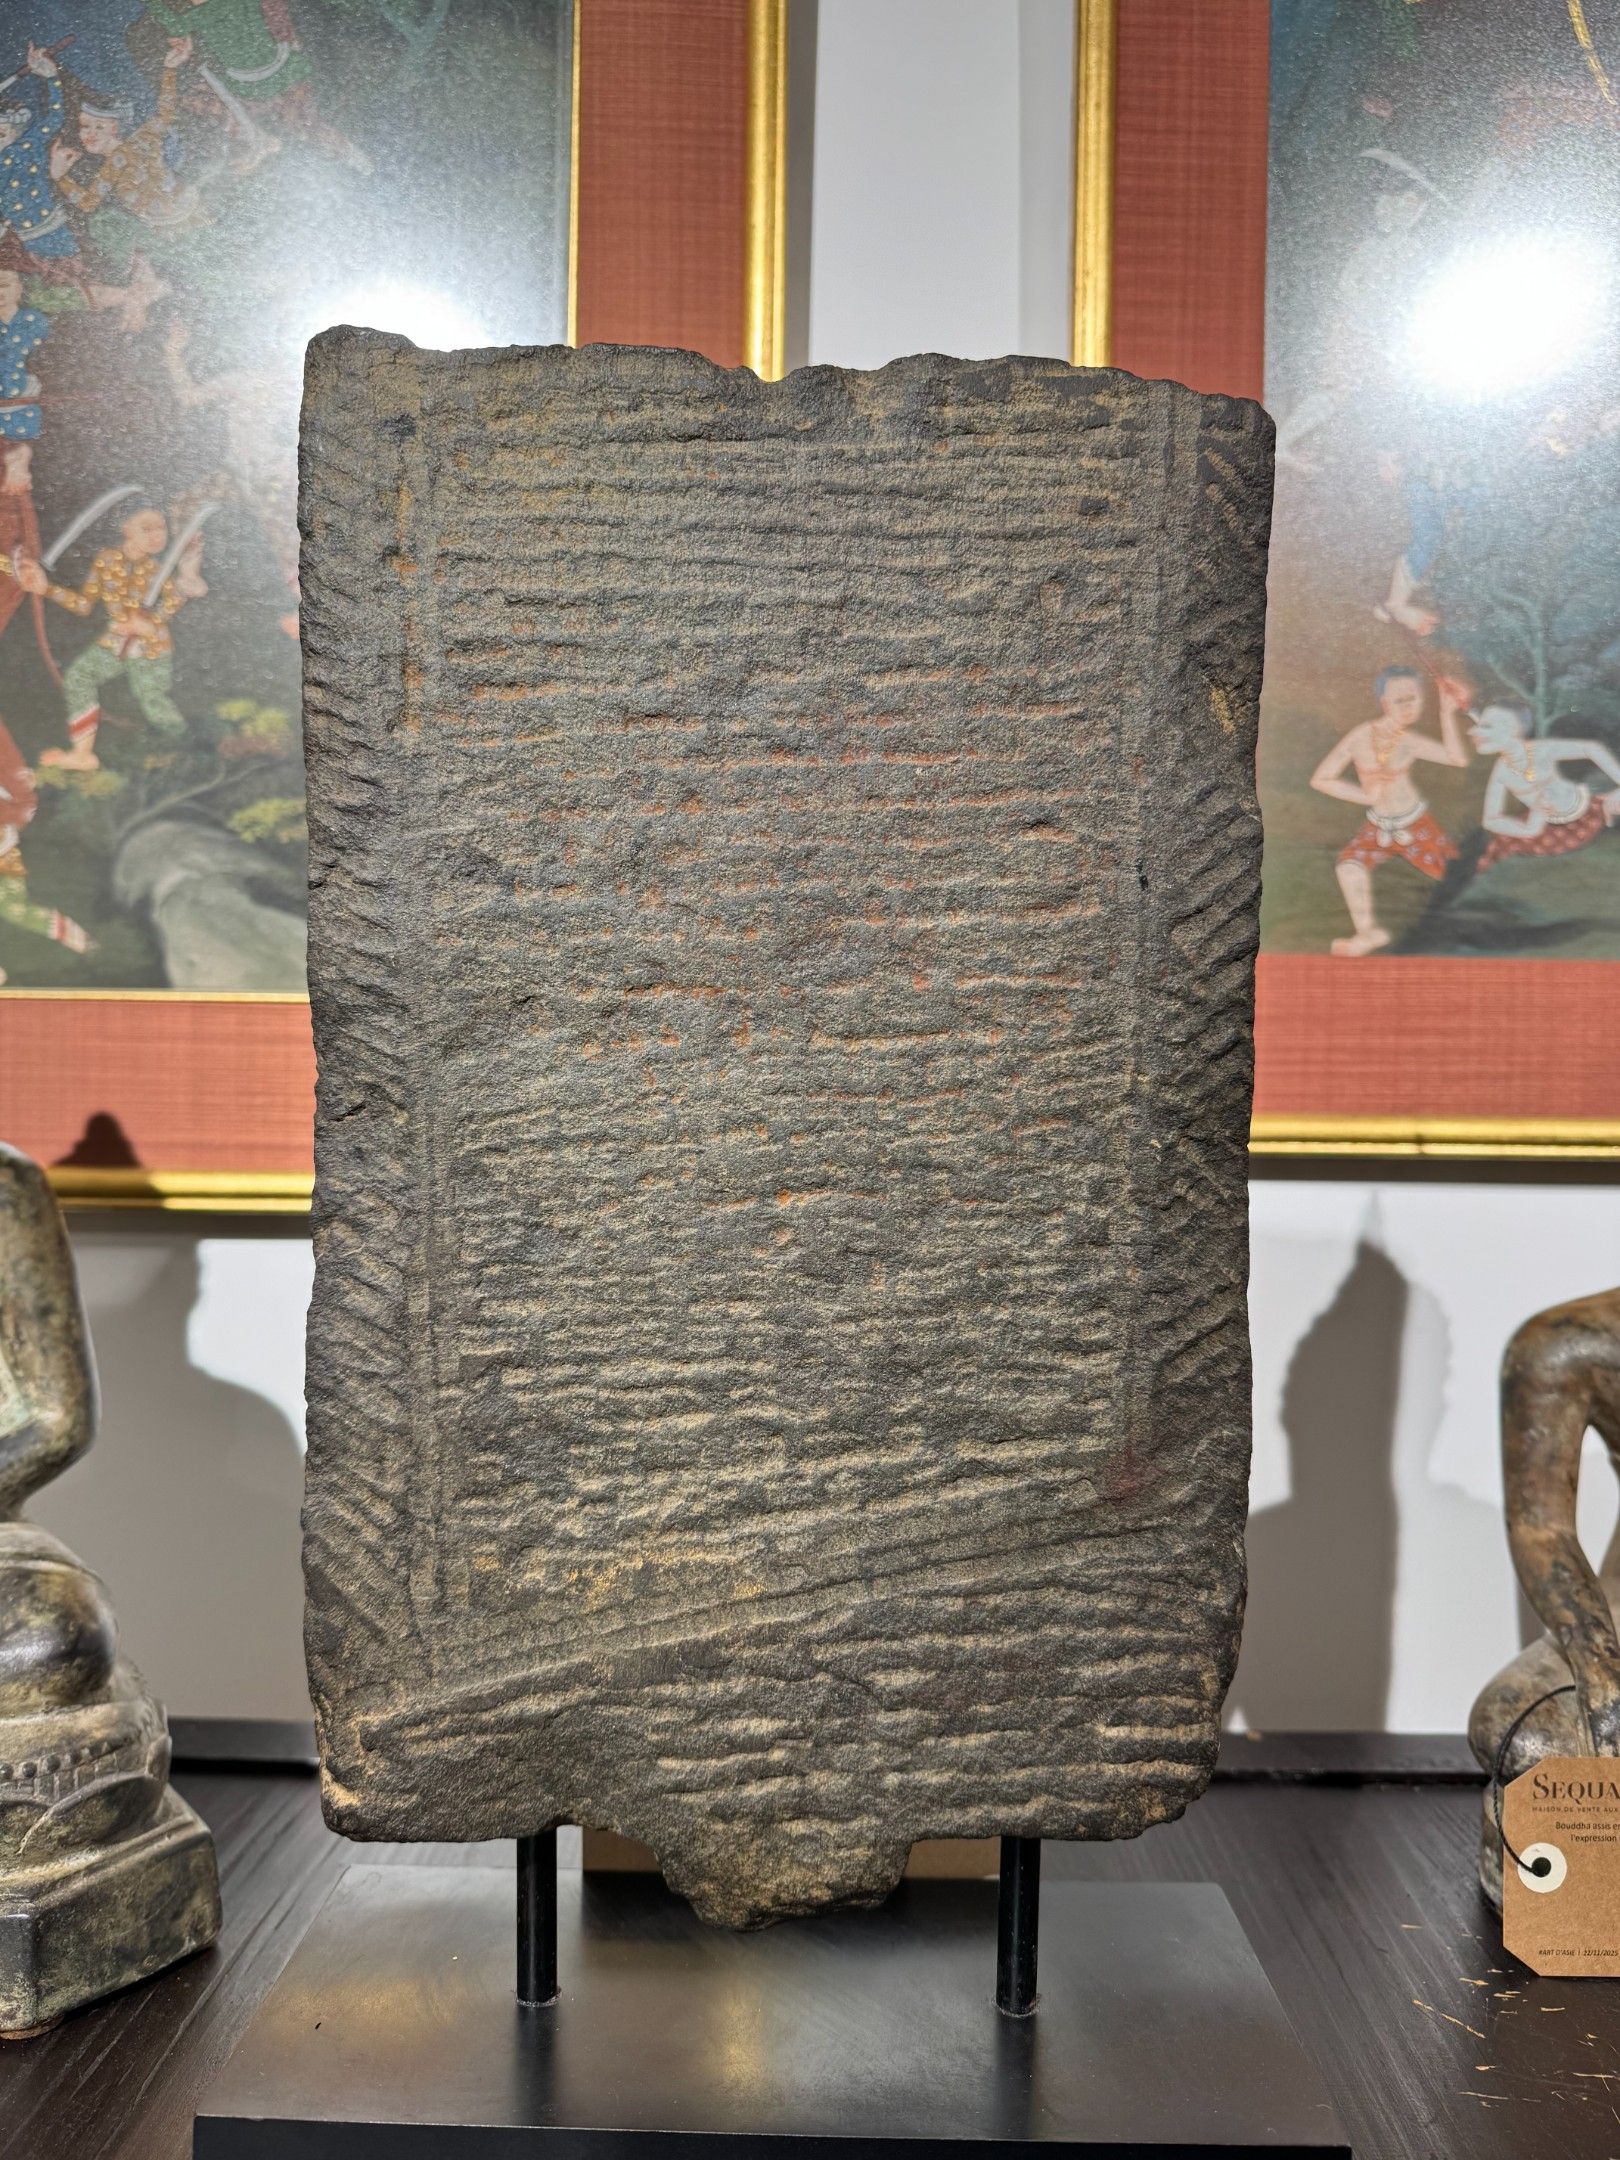 SEQUA
MAISON DE VENTE AUX
Bouddha assis e
l'expression
#ART D'ASIE | 22/11/2025